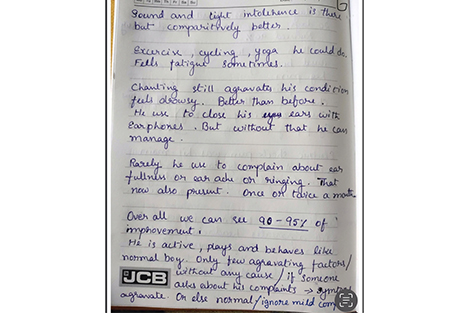 Sound and light intolerence is there
but comparitively better.
Excercise, cycling, yoga he could do.
Fells fatigue sometimes.
Chanting still agravates his condition
feels drowsy. Better than before.
He use to close his ears with
earphones. But without that he can
manage.
Rarely he use to complain about ear
fullness or ear ache or ringing. That
now also present. Once or twice a month
Over all we can see 90-95% of
improvement.
He is active, plays and behaves like
normal boy. Only few agravating factors/
without any cause / if someone
JCB
asks about his complaints →
agravate. Or else normal/ignore mild